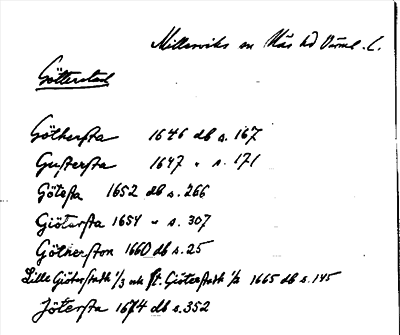 Millesviks sn Näs hd Värml. l.
Götterstad
Göthersta 1646 db s. 167
Gustersta 1647 " s. 171
Götesta 1652 db s. 266
Giötersta 1654 " s. 307
Götherston 1660 db s. 25
Lille Giöterstadh 1/3 och St. Giöterstadh 1/2 1665 db s. 145
Jötersta 1674 db s. 352